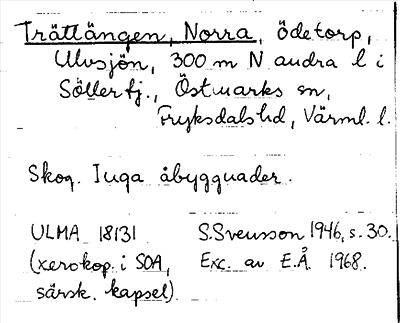 Trättängen, Norra, ödetorp,
Ulvsjön, 300 m N andra l i
Söllerfj., Östmarks sn,
Fryksdals hd, Värml. l.
Skog. Inga åbyggnader.
ULMA 18131 S.Svensson 1946, s. 30.
(xerokop. i SOA, Exc. av E.Å. 1968.
särsk. kapsel).